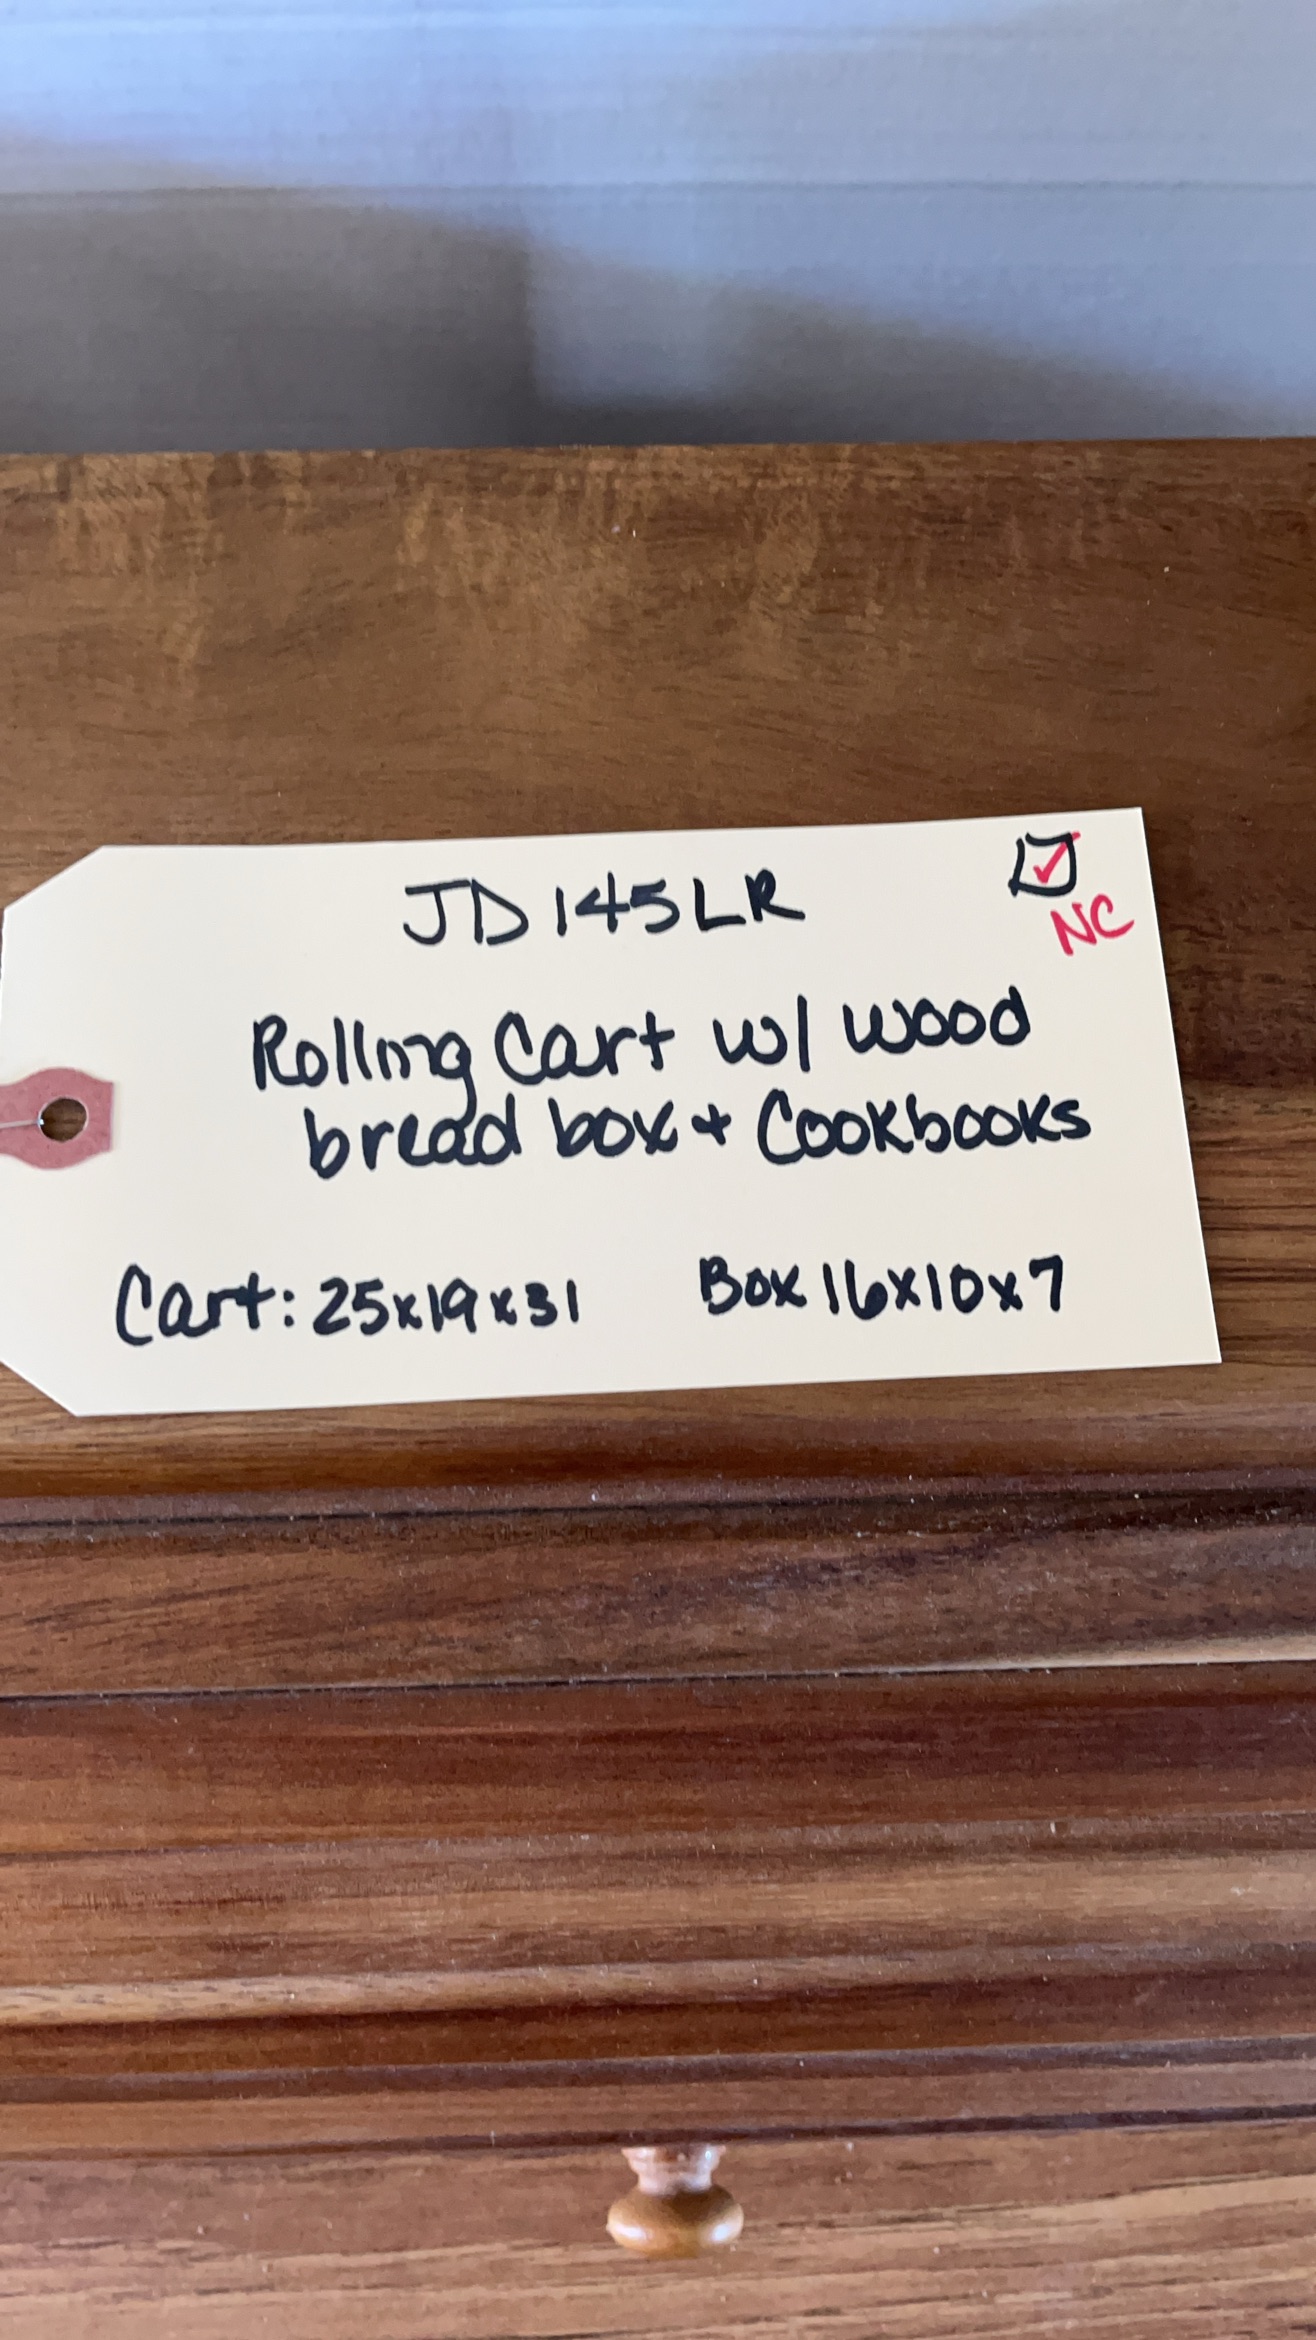 JD145LR
NC
Rolling Cart w/ wood
bread box + Cookbooks
Cart: 25x19x31
Box 16x10x7